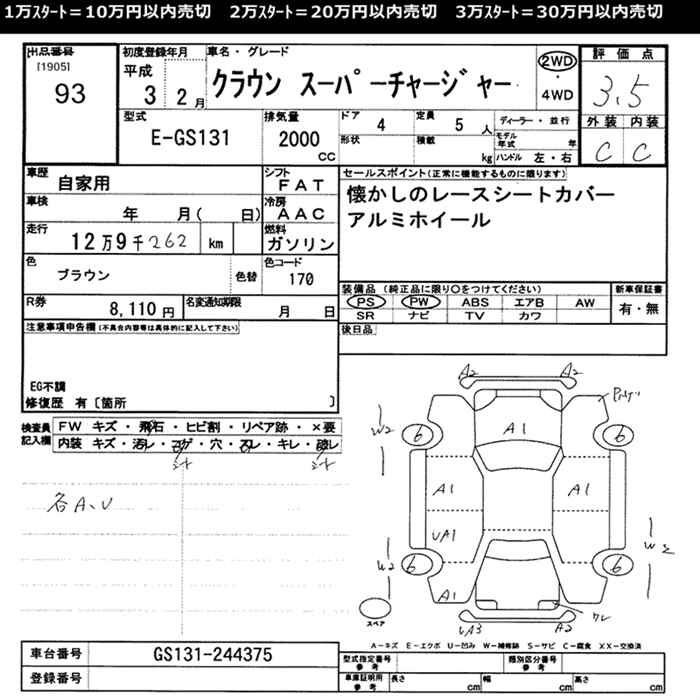 1万ｽﾀｰﾄ＝10万円以内売切　2万ｽﾀｰﾄ＝20万円以内売切　3万ｽﾀｰﾄ＝30万円以内売切
出品番号 初度登録年月 車名・グレード 評価点
[1905] 平成 クラウン スーパーチャージャー 2WD 3.5
93 3 2月 ・ 4WD
型式 排気量 ドア 4 定員 5人 ディーラー・並行 外装 内装
E-GS131 2000 CC 形状 積載 kg モデル年式 年 C C
ハンドル 左・右
車歴 自家用 シフト FAT セールスポイント(正常に機能するものに限ります)
車検 年 月( 日) 冷房 AAC 懐かしのレースシートカバー
走行 12万9千262 km 燃料 ガソリン アルミホイール
色 ブラウン 色替 色コード 170
装備品 (純正品に限り○をつけてください) 新車保証書
R券 8,110円 名変通知期限 月 日 PS PW ABS エアB AW 有・無
SR ナビ TV カワ
注意事項申告欄(不具合内容等は具体的に記入して下さい) 後日品
EG不調
修復歴 有〔箇所 〕
検査員記入欄 FW キズ・飛石・ヒビ割・リペア跡・×要
内装 キズ・汚レ・コゲ・穴・スレ・キレ・破レ
シート シート
各A、U
A2 A2
A1
W2 6 6
A1 A1
UA1
W2 6 6 W2
A1
スペア UA3 A2
A-キズ E-エクボ U-凹み W-補修跡 S-サビ C-腐食 XX-交換済
車台番号 GS131-244375 型式指定番号 参考 類別区分番号 参考
登録番号 車庫証明用 参考 長さ cm 幅 cm 高さ cm